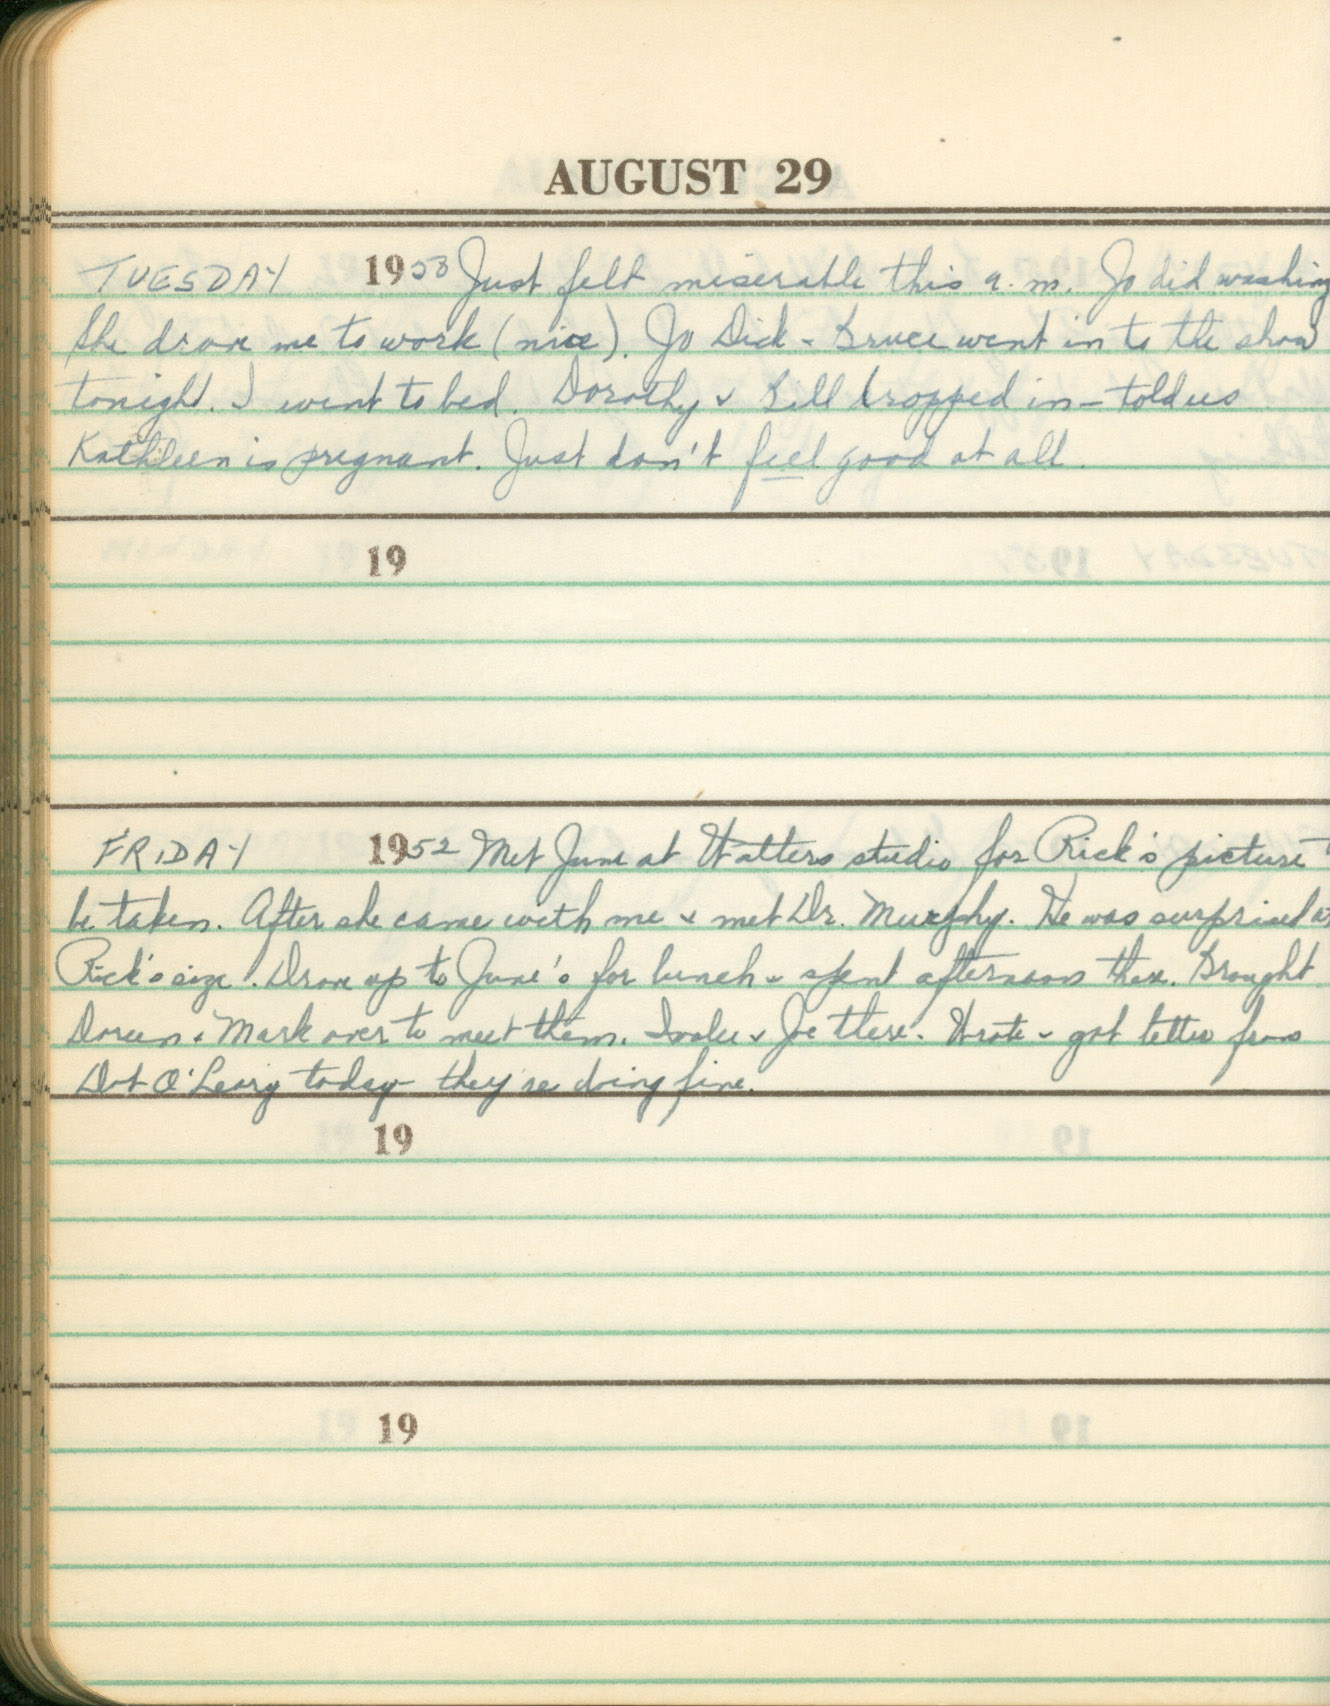 AUGUST 29
TUESDAY 1950 Just felt miserable this a.m. Jo did washing
She drove me to work (nice). Jo Dick & Bruce went in to the show
tonight. I went to bed. Dorothy & Bill dropped in - told us
Kathleen is pregnant. Just don't feel good at all.
19
FRIDAY 1952 Met June at Watters studio for Rick's picture
be taken. After she came with me & met Dr. Murphy. He was surprised at
Rick's size. Drove up to June's for lunch & spent afternoon there. Brought
Doreen & Mark over to meet them. & Joe there. Wrote & got letter from
Dot O'Leary today they're doing fine.
19
19